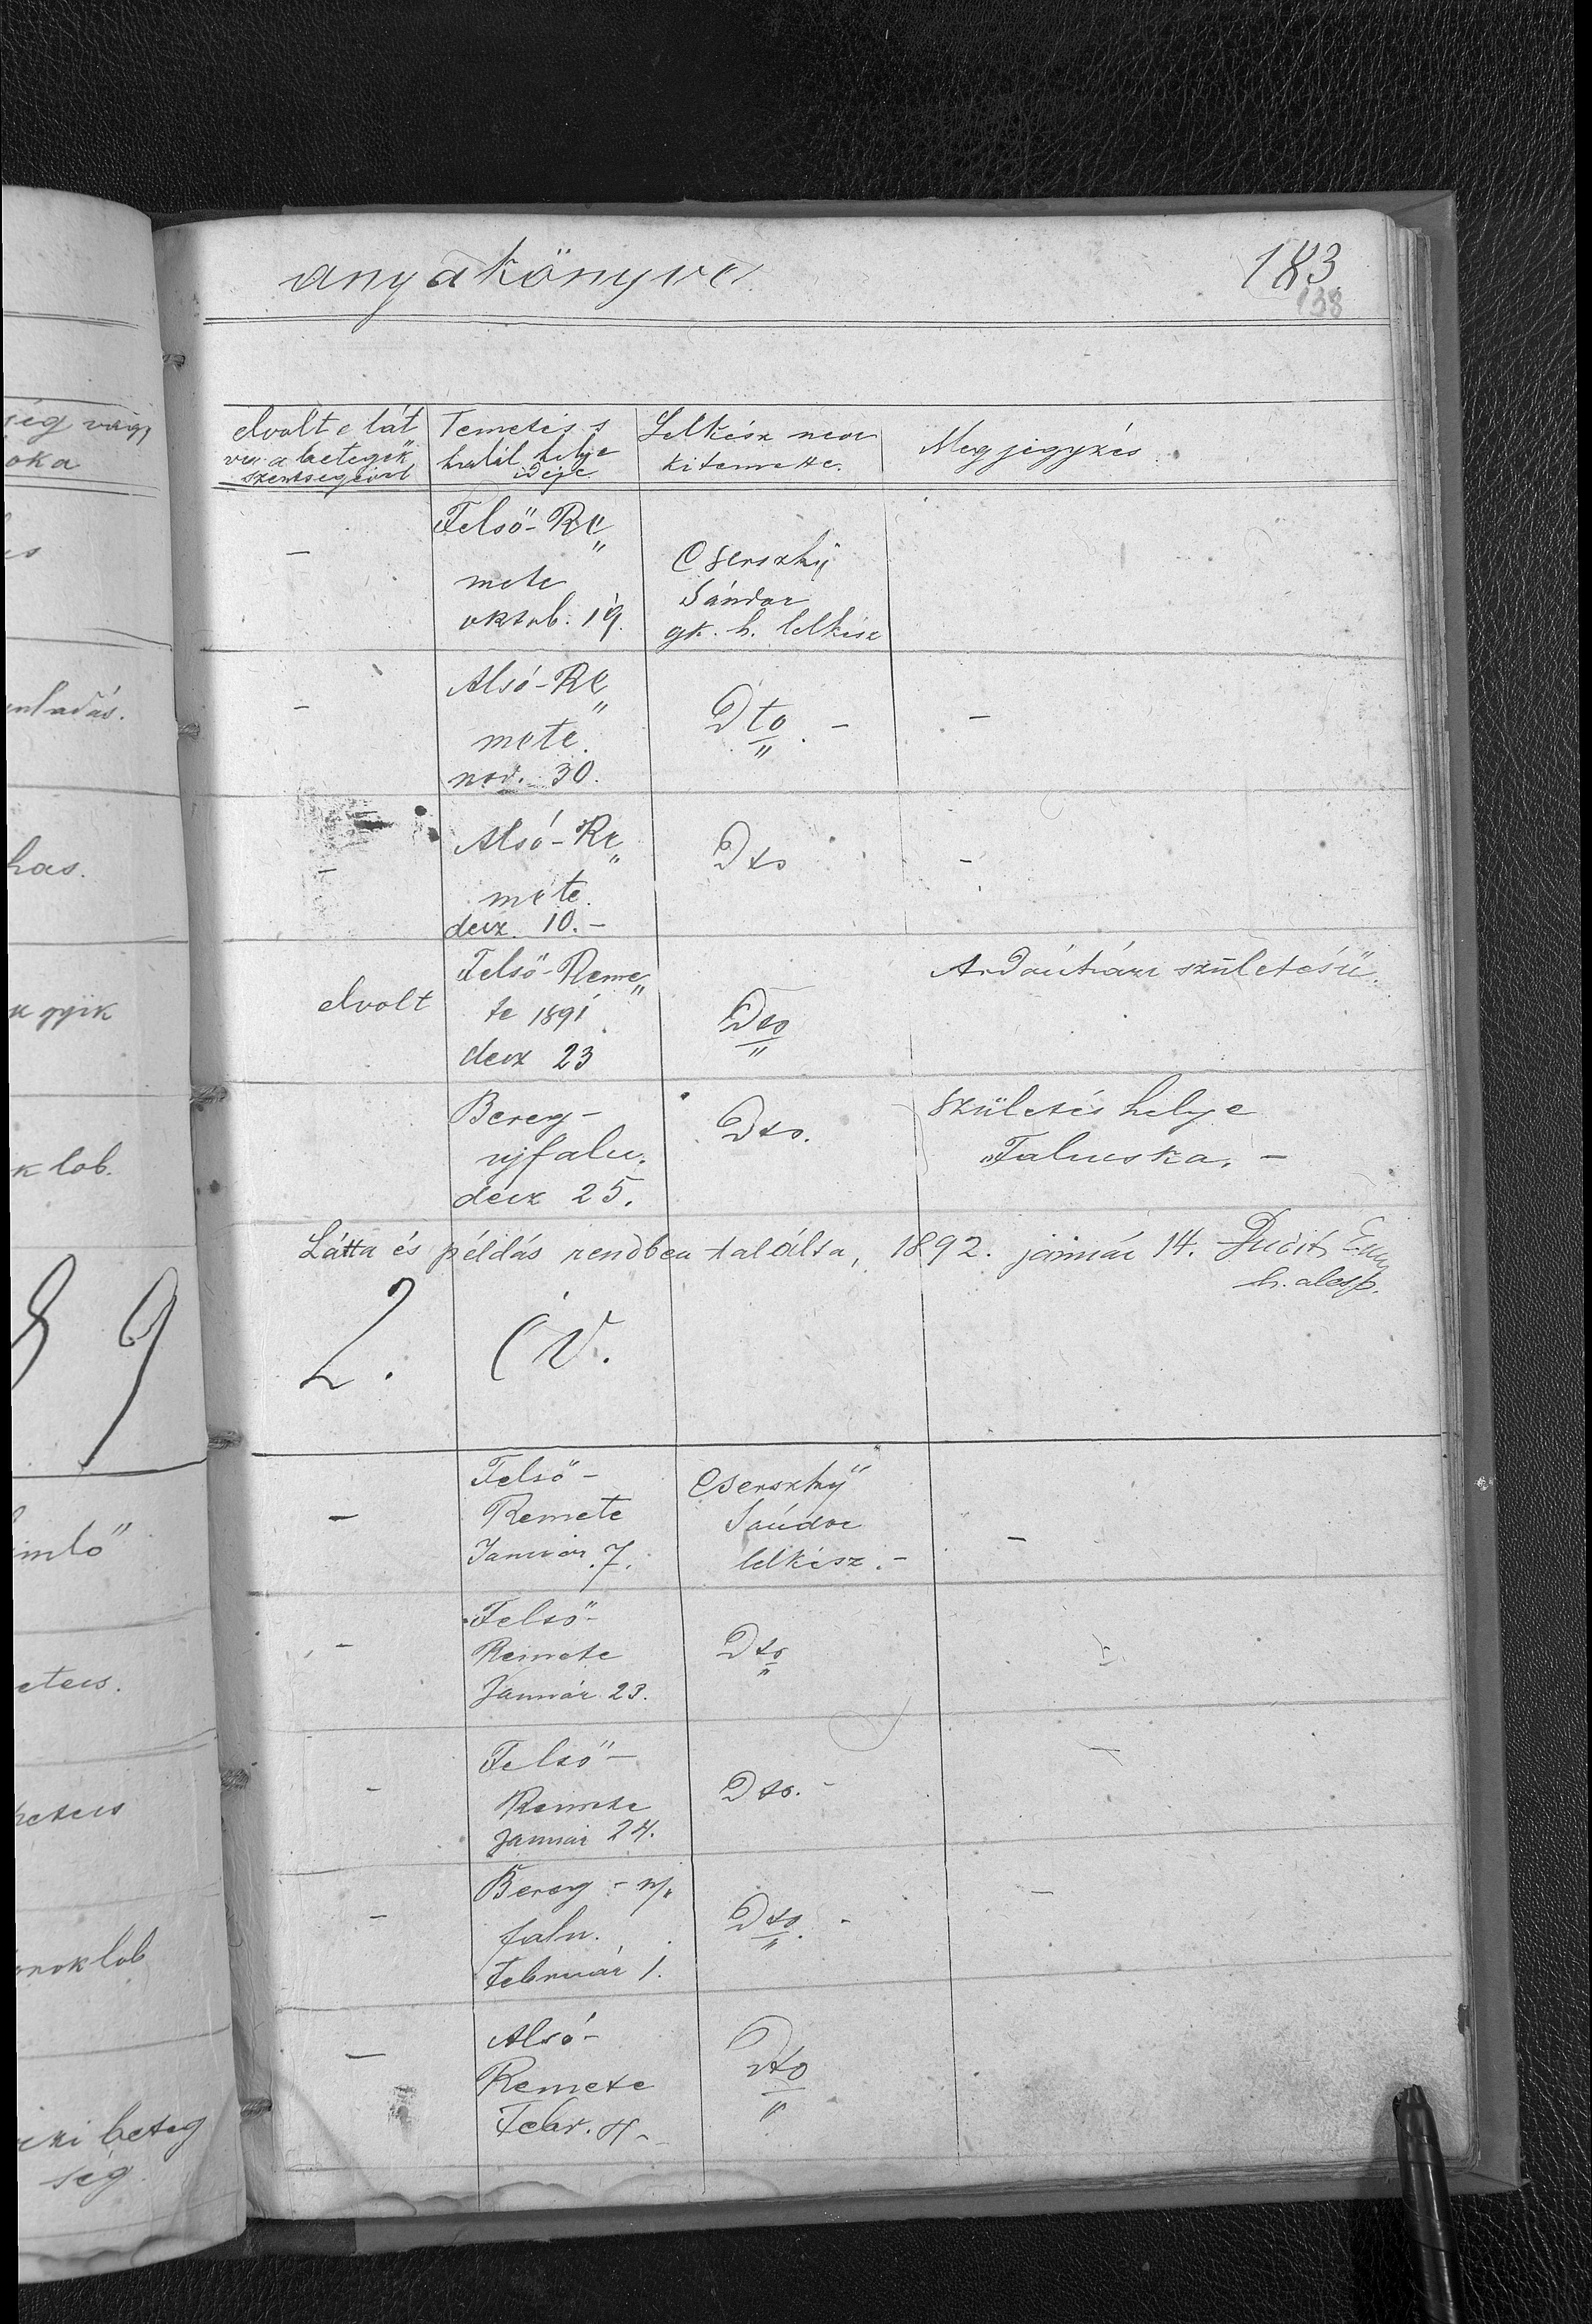 anyakönyve.
183
138
ség vagy
oka
elvolt e lát
va a betegek
szentségeivel
Temetés s
halál helye
ideje
Lelkész neve
ki temette.
Megjegyzés
Felső-Re„
mete
oktob. 19.
Cserszky
Sándor
gk. h. lelkész
—
Alsó-Re„
mete.
nov. 30.
Dto. -
—
—
has.
Alsó-Re„
mete.
decz. 10. -
Dto
-
elvolt
Felső-Reme„
te 1891
decz 23
Dto
születésü.
k lob.
Bereg-
ujfalu.
decz 25.
Dto.
születés helye
Faluska. -
Látta és példás rendben találta, 1892. január 14.
h. alesp.
8 9
2. év.
—
Felső-
Remete
Január 7.
Cserszky
Sándor
lelkész. -
—
-
Felső-
Remete
Január 23.
Dto
-
Felső-
Remete
Január 24.
Dto. -
—
-
Bereg-uj„
falu.
Február 1.
Dto. -
—
oroklob
—
Alsó-
Remete
Febr. 4.
Dto
beteg
ség